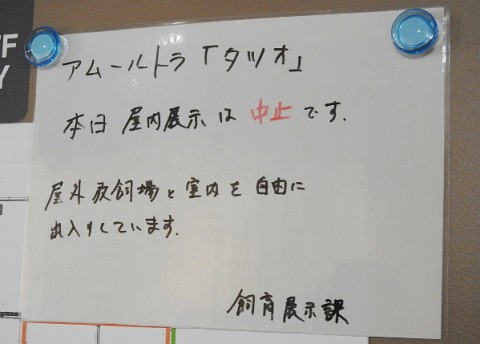 FF
Y
アムールトラ「タツオ」
本日 屋内展示は 中止 です.
屋外放飼場と室内を自由に
出入りしています.
飼育展示課